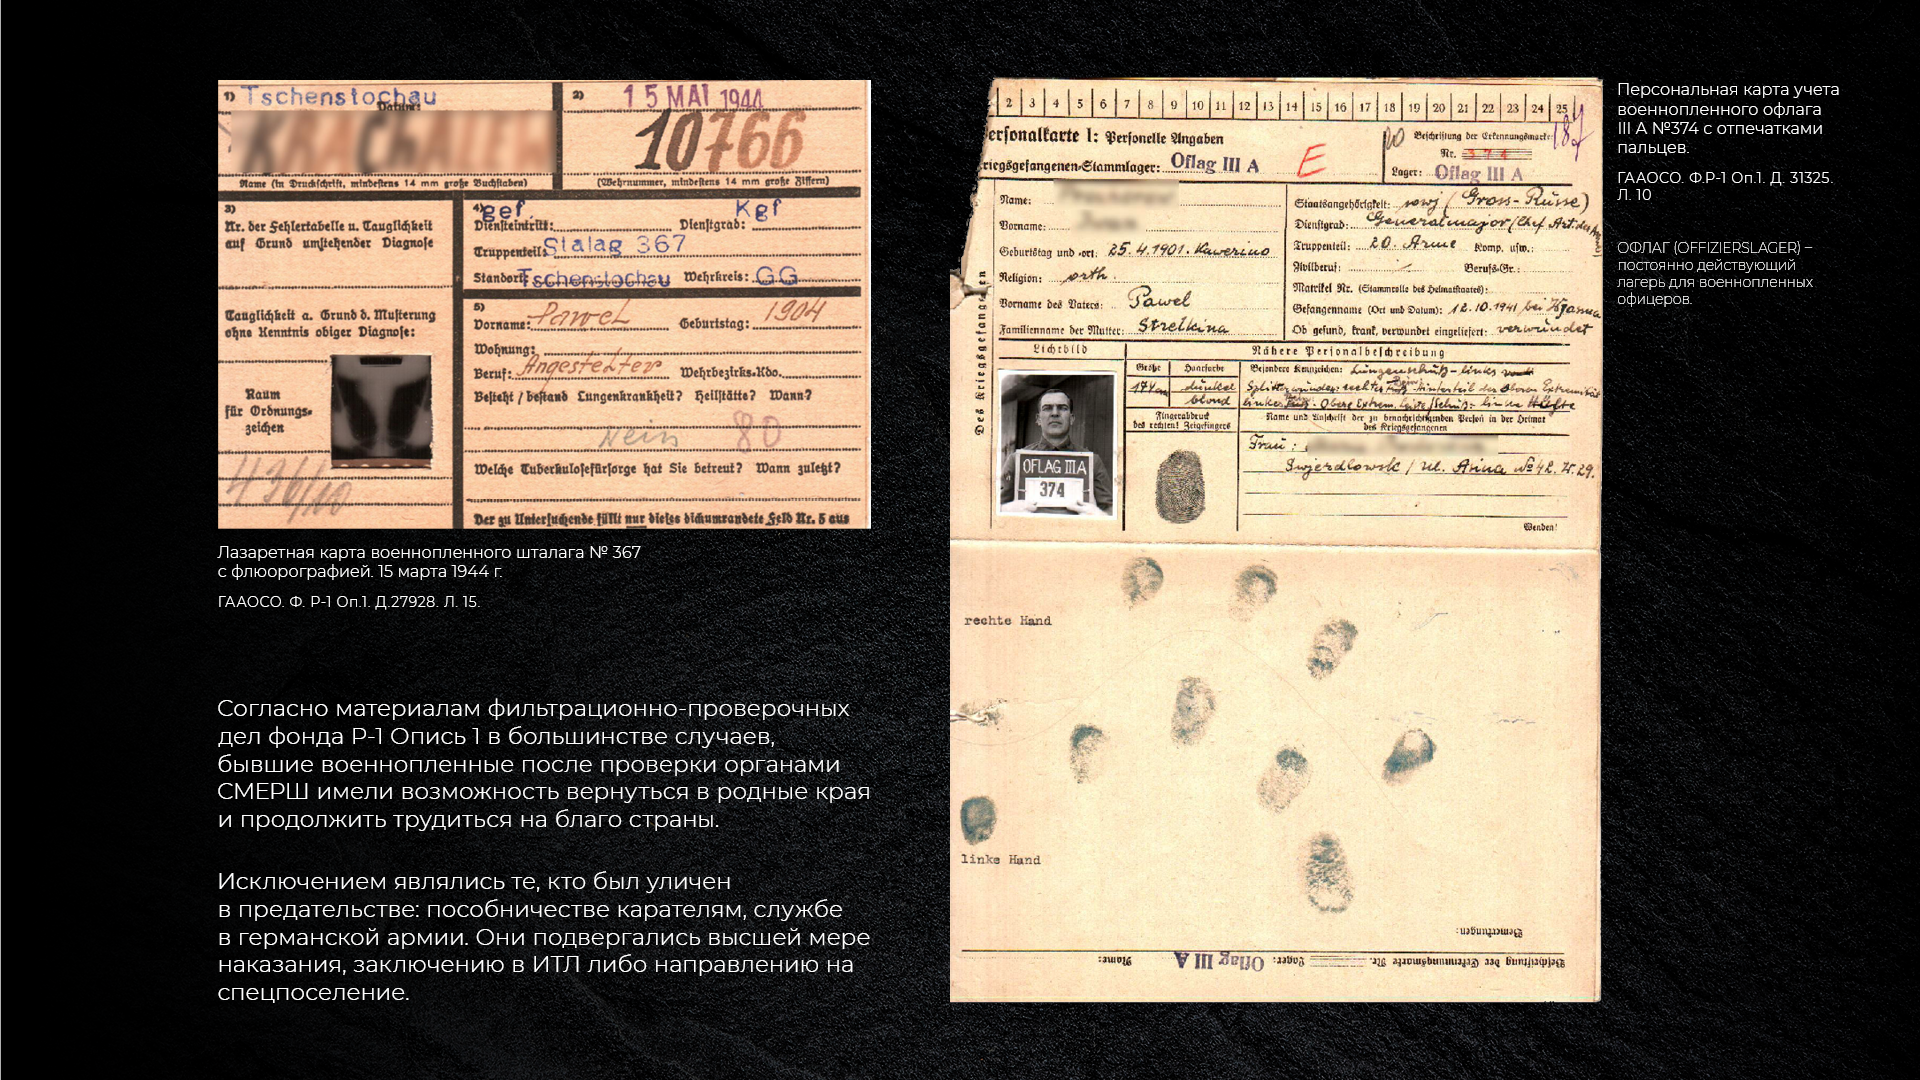 1) Tschenstochau
Datum:
Name (in Druckschrift, mindestens 14 mm große Buchstaben)
2) 15 MAI 1944
10766
(Wehrnummer, mindestens 14 mm große Ziffern)
3)
Nr. der Fehlertabelle u. Tauglichkeit
auf Grund umstehender Diagnose
Tauglichkeit a. Grund d. Musterung
ohne Kenntnis obiger Diagnose:
Raum
für Ordnungs-
zeichen
4) gef. Kgf
Diensteintritt: Dienstgrad:
Truppenteil: Stalag 367
Standort: Tschenstochau Wehrkreis: GG
5)
Vorname: Pawel Geburtstag: 1904
Wohnung:
Beruf: Angestellter Wehrbezirks-Kdo.
Besteht / bestand Lungenkrankheit? Heilstätte? Wann?
Nein 80
Welche Tuberkulosefürsorge hat Sie betreut? Wann zuletzt?
Der zu Untersuchende füllt nur dieses dickumrandete Feld Nr. 5 aus
Лазаретная карта военнопленного шталага № 367
с флюорографией. 15 марта 1944 г.
ГААОСО. Ф. Р-1 Оп.1. Д.27928. Л. 15.
Согласно материалам фильтрационно-проверочных
дел фонда Р-1 Опись 1 в большинстве случаев,
бывшие военнопленные после проверки органами
СМЕРШ имели возможность вернуться в родные края
и продолжить трудиться на благо страны.
Исключением являлись те, кто был уличен
в предательстве: пособничестве карателям, службе
в германской армии. Они подвергались высшей мере
наказания, заключению в ИТЛ либо направлению на
спецпоселение.
2 3 4 5 6 7 8 9 10 11 12 13 14 15 16 17 18 19 20 21 22 23 24 25
ersonalkarte I: Personelle Angaben
riegsgefangenen-Stammlager: Oflag III A E
Beschriftung der Erkennungsmarke
Nr. 374
Lager: Oflag III A
Des Kriegsgefangenen
Name:
Vorname:
Geburtstag und -ort: 25.4.1901. Kawerino
Religion: orth.
Vorname des Vaters: Pawel
Familienname der Mutter: Strelkina
Staatsangehörigkeit: sowj (Gross-Russe)
Dienstgrad: Generalmajor/Chef Art. der
Truppenteil: 20. Armee Komp. usw.:
Zivilberuf: Berufs-Gr.:
Matrikel Nr. (Stammrolle des Heimatstaates):
Gefangenname (Ort und Datum): 12.10.1941 bei Wjasma
Ob gesund, krank, verwundet eingeliefert: verwundet
Lichtbild
Nähere Personalbeschreibung
Größe Haarfarbe
174 dunkel
blond
Besondere Kennzeichen: Lungenschuß - links
Fingerabdruck
des rechten! Zeigefingers
Name und Anschrift der zu benachrichtigenden Person in der Heimat
des Kriegsgefangenen
Frau:
Swjerdlowsk / ul. № 42.
Wenden!
OFLAG III A
374
rechte Hand
linke Hand
Bemerkungen:
Beschriftung der Erkennungsmarke Nr. Lager: Oflag III A Name:
Персональная карта учета
военнопленного офлага
III А №374 с отпечатками
пальцев.
ГААОСО. Ф.Р-1 Оп.1. Д. 31325.
Л. 10
ОФЛАГ (OFFIZIERSLAGER) –
постоянно действующий
лагерь для военнопленных
офицеров.